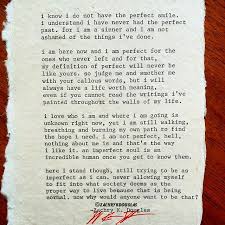 i know i do not have the perfect smile.
i understand i have never had the perfect
past, for i am a sinner and i am not
ashamed of the things i've done.
i am here now and i am perfect for the
ones who never left and for that,
my definition of perfect will never be
like yours. so judge me and smother me
with your callous words, but i will
always have a life worth meaning,
even if you cannot read the writings i've
painted throughout the walls of my life.
i love who i am and where i am going is
unknown right now, yet i am still walking,
breathing and burning my own path to find
the hope i need. i am not perfect, hell,
nothing about me is and that's the way
i like it. an imperfect soul is an
incredible human once you get to know them.
here i stand though, still trying to be as
imperfect as i can. never allowing myself
to fit into what society deems as the
proper way to live because that is being
normal. now why would anyone want to be that?
-Zachry K. Douglas